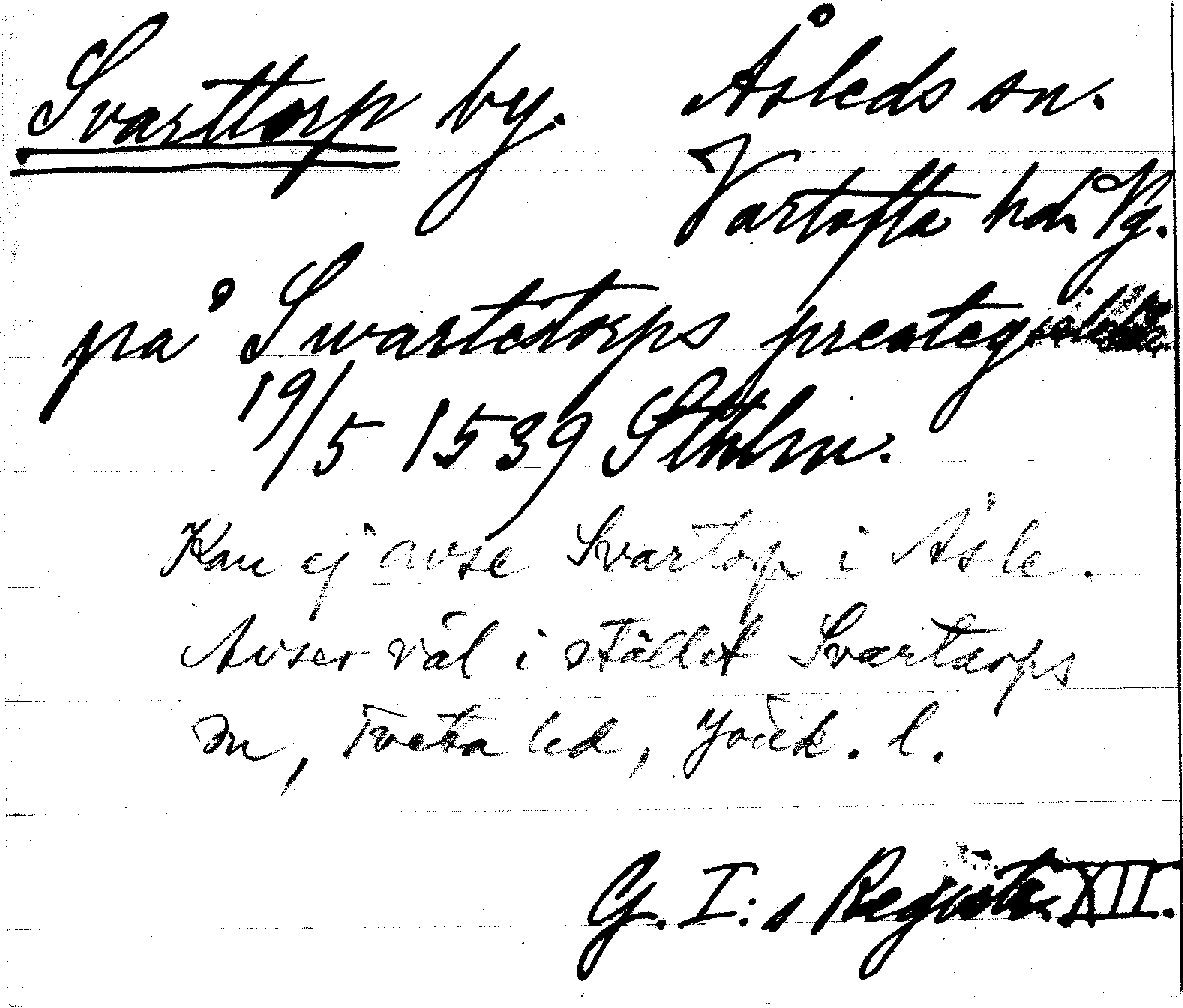 Svarttorp by. Åsleds sn.
Vartofta hd. Vg.
på Swartetorps
19/5 1539 Sthlm.
Kan ej avse Svartorp i Åsle.
Avser väl i stället Svartorps
sn, Tveta hd, Jönk. l.
G. I:s Registr. XII.